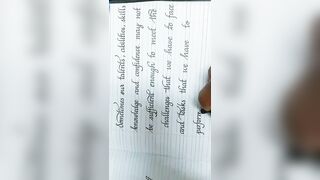 Sometimes our talents, abilities, skills
knowledge and confidence may not
be sufficient enough to meet the
challenges that we have to face
and tasks that we have to
perform